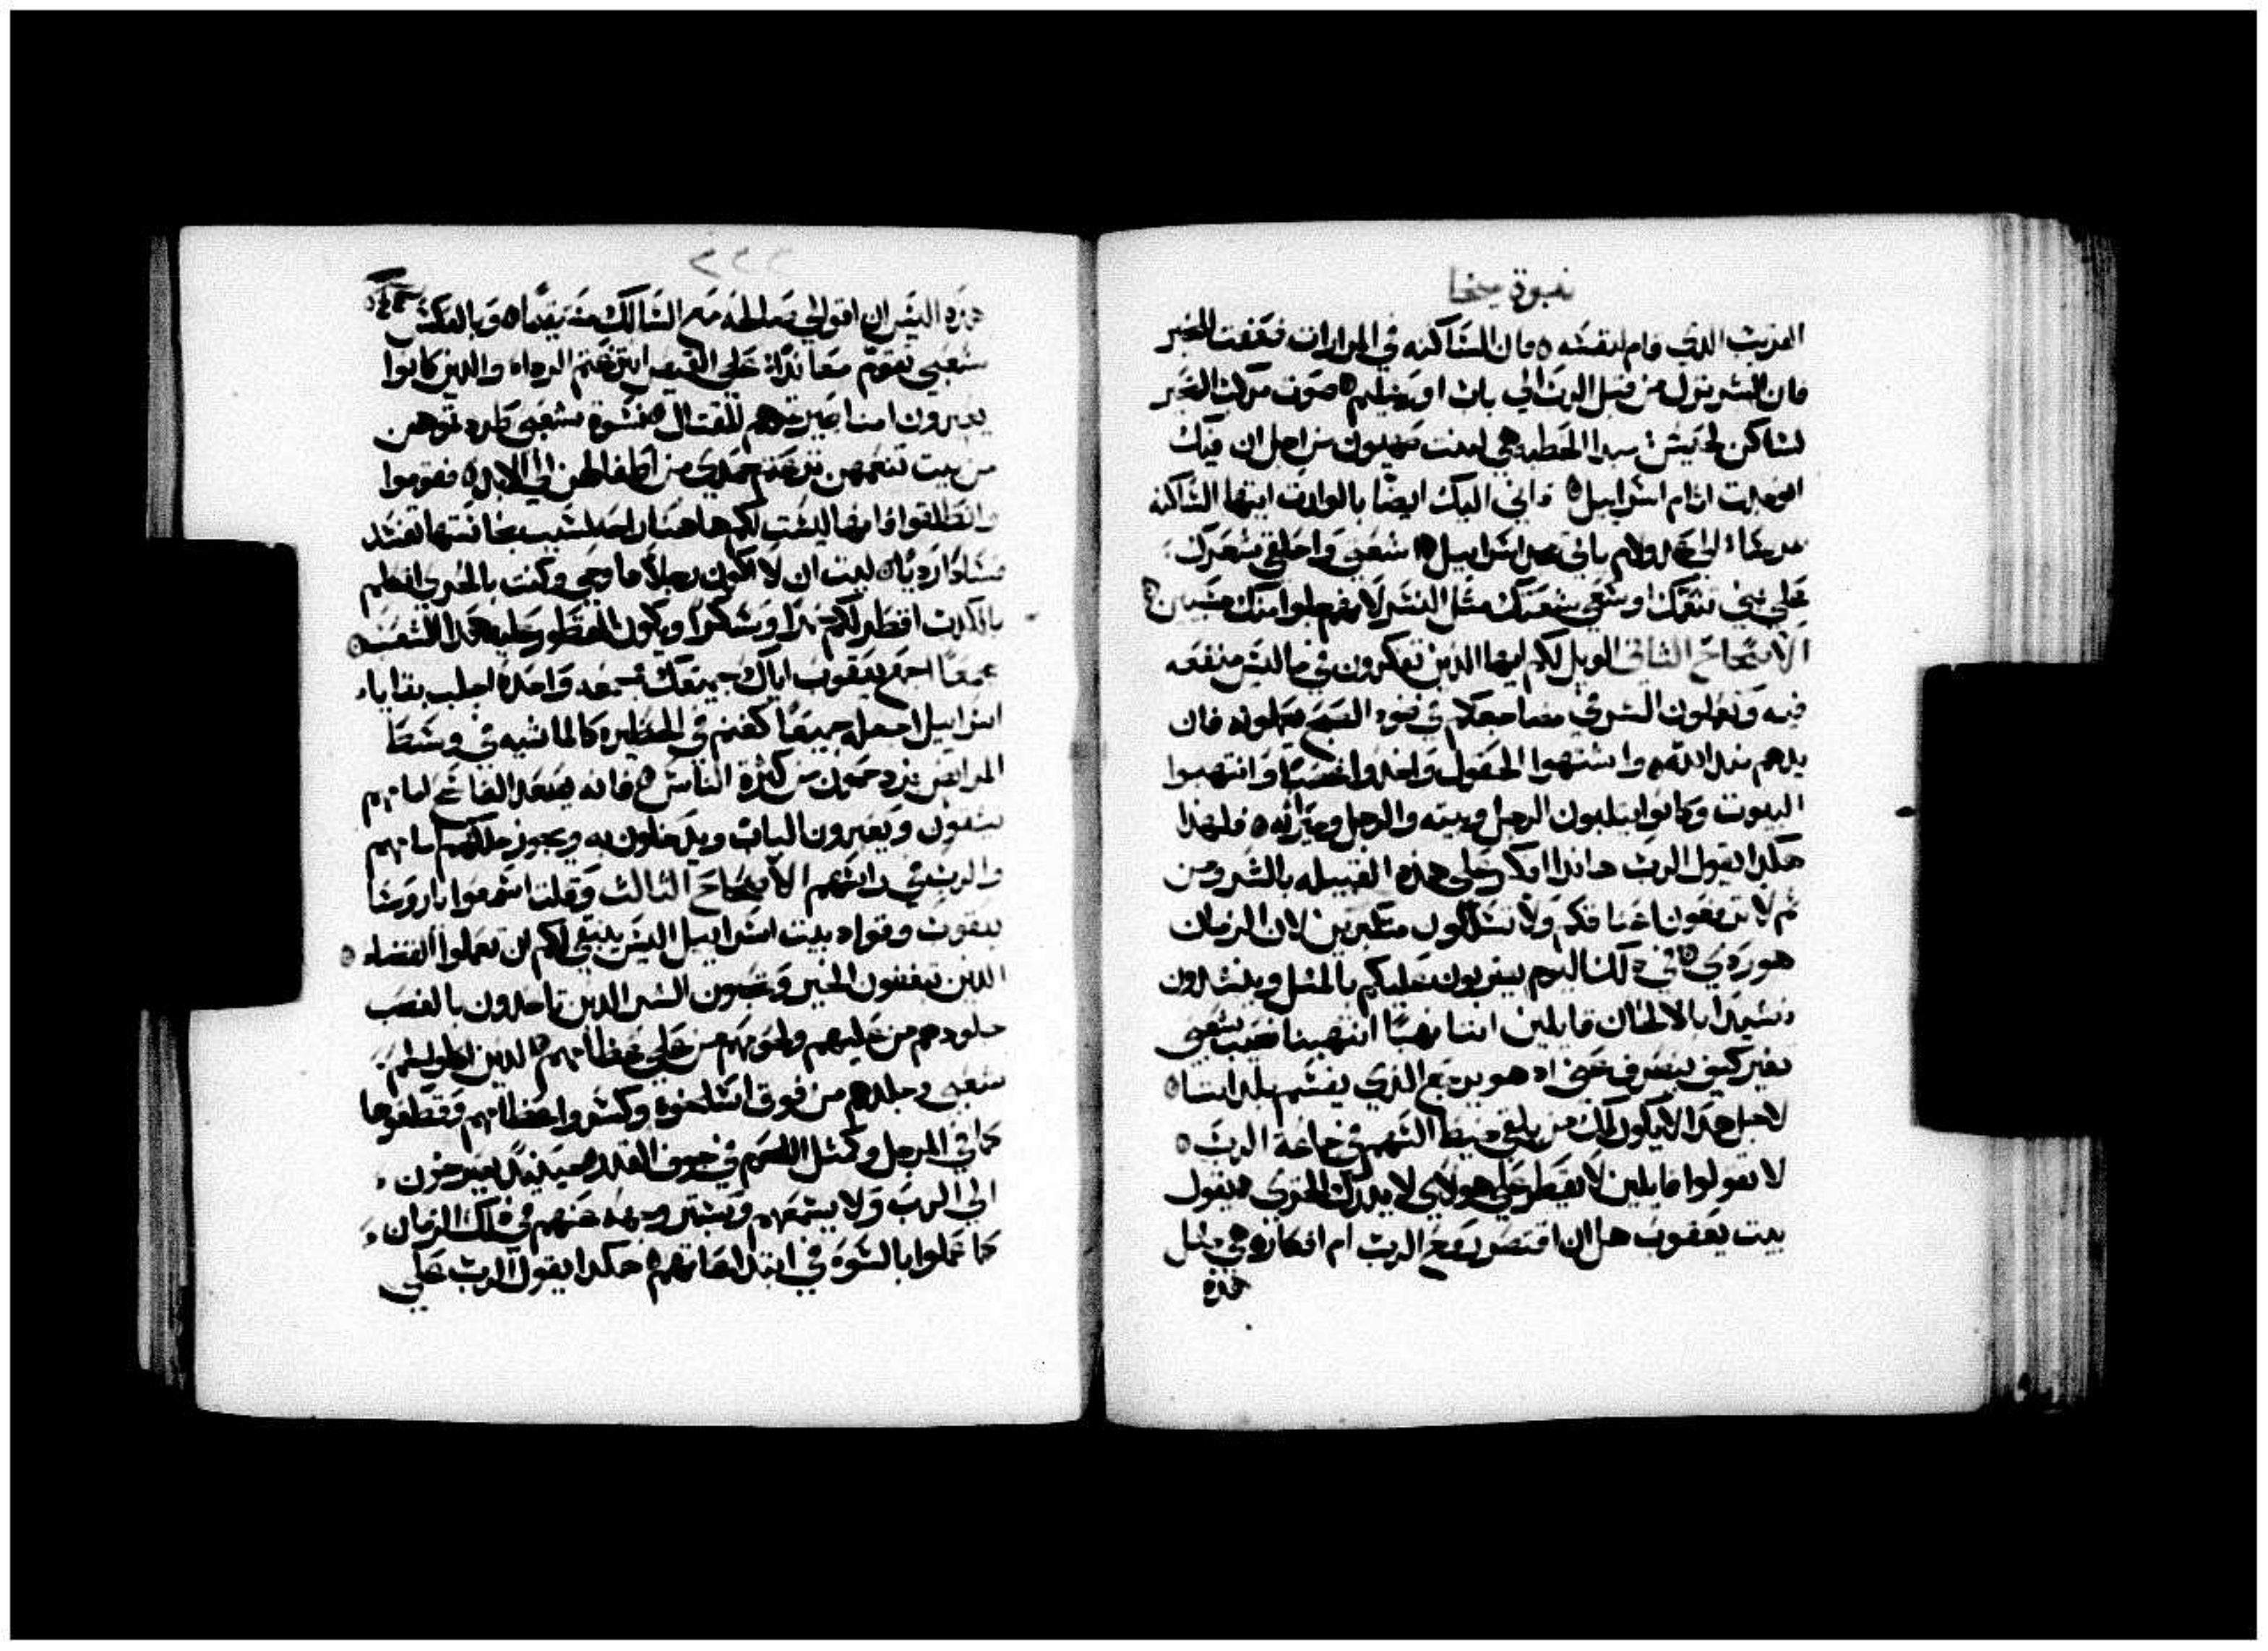 نبوة ميخا
القريب الذي قام لنفسه ٥ فان الساكنه في المرارات ضعفت للخير
فان الشر نزل من قبل الرب الي باب اورشليم ٥ صوت مركب
لساكن لاخيش مبدا الخطيه هي لبنت صهيون من اجل ان فيك
اثام اسراييل ٥ اني اليك ايضا بالوارث ايتها الساكنه
الي عدولام ياتي مجد اسراييل ٥ واحلقي شعرك
علي بني تنعمك اوسعي مثل النسر لانهم جلوا منك مسبيين
الاصحاح الثاني الويل لكم ايها الذين تفكرون في ما ليس منفعه
فيه وتعملون الشر في مضاجعكم في ضوء الصبح فان
يدهم ضد الله واشتهوا الحقول واخدوا غصبا وانتهبوا
البيوت وكانوا يسلبون الرجل وبيته والرجل وميراثه ٥ فلهذا
هكدا يقول الرب هاندا افكر علي هده القبيله بالشر ومن
ثم لا ترفعون اعناقكم ولا تسلكون متكبرين لان الزمان
هو ردي ٥ في دلك اليوم يضربون عليكم بالمثل وينشدون
نشيدا بالالحان قايلين اننا نهبا انتهبنا نصيب شعبي
تغير كيف ينصرف عني اد هو يرجع الذي يقسم بلداننا
لاجل هدا لا يكون لك من يلقي خيط السهم في جماعة الرب ٥
لا تقولوا قايلين لا يقطر علي هولاي لا يدرك الخزي ٥ يقول
بيت يعقوب هل ان اقتصر روح الرب ام افكاره هي مثل
هذه
٢٢٢
هذه اليس ان اقوالي صالحه مع السالك مستقيما ٥ وبالعكس
شعبي تقوم معاندا علي القميص نزعتم الرداء والدين كانوا
يعبرون امنا صيرتموهم للقتال ٥ نسوة شعبي طردتموهن
من بيت تنعمهن نزعتم حمدي من اطفالهن الي الابد ٥ فقوموا
وانطلقوا فانها ليست لكم هاهنا راحه لسبب نجاستها تفسد
فسادا رديا ٥ ليت ان لا اكون رجلا دا وحي وكنت بالحري اتكلم
بالكدب اقطر لكم خمرا وسكرا ويكون المقطور عليه هدا الشعب ٥
جمعا اجمع يعقوب اياك جميعك واحدة اجلب بقايا
اسراييل اجعله جميعا كغنم في الحظيرة كالماشيه في وسط
المرابض يزدحمون من كثرة الناس ٥ فانه يصعد الفاتح امامهم
يقسمون ويعبرون الباب ويدخلون به ويجوز ملكهم امامهم
والرب في راسهم الاصحاح الثالث وقلت اسمعوا يا روسا
يعقوب وقواد بيت اسراييل اليس ينبغي لكم ان تعملوا القضاء ٥
الذين تبغضون الخير وتحبون الشر الدين تاخدون بالغصب
جلودهم من عليهم ولحومهم من علي عظامهم ٥ الدين اكلوا لحم
شعبي وجلدهم من فوق اسلخوه وكسروا عظامهم وقطعوها
كما في المرجل وكمثل اللحم في جوف القدر ٥ حينيد يصرخون
الي الرب ولا يسمعهم ويستر وجهه عنهم في دلك الزمان
كما عملوا بالسوء في ابتداعاتهم ٥ هكدا يقول الرب علي